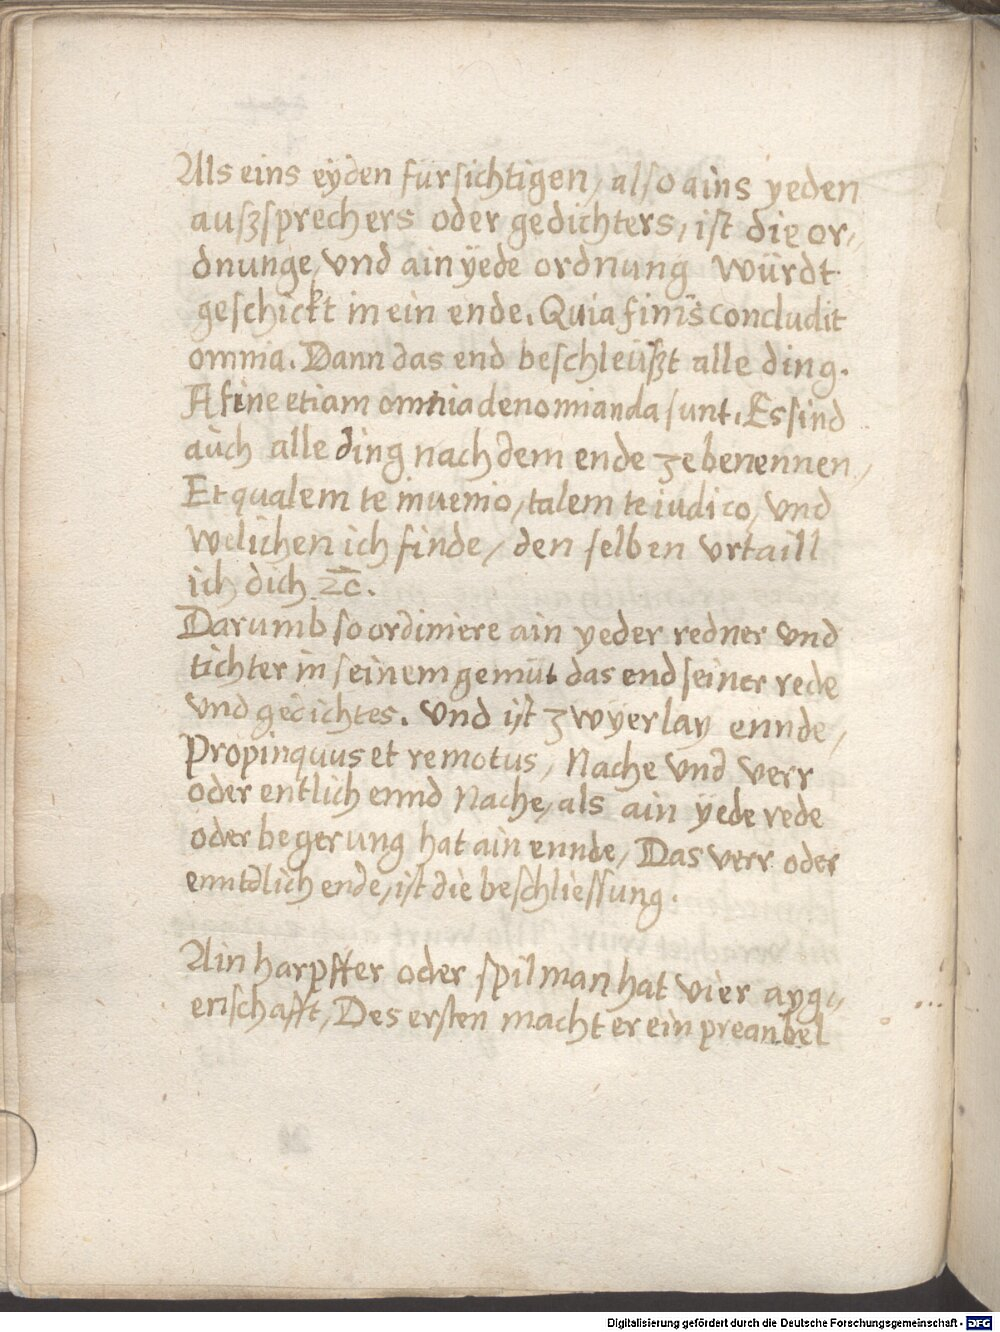 Als eins eyden fürsichtigen, also ains yeden
außsprechers oder gedichters, ist die or,,
dnunge, vnd ain ÿede ordnung würdt
geschickt in ein ende. Quia finis concludit
omnia. Dann das end beschleüßt alle ding.
A fine etiam omnia denomianda sunt. Es sind
auch alle ding nach dem ende ze benennen,
Et qualem te inuenio, talem te iudico, vnd
welichen ich finde, den selben vrtaill
ich dich ꝛc̄.
Darumb so ordiniere ain yeder redner vnd
tichter in seinem gemüt das end seiner rede
vnd gedichtes. Vnd ist zwyerlay ennde,
Propinquus et remotus, Nache vnd verr
oder entlich ennd Nache, als ain ÿede rede
oder begerung hat ain ennde, Das verr oder
enntdlich ende, ist die beschliessung.
Ain harpffer oder spilman hat vier ayg,,
enschafft, Des ersten macht er ein preanbel
Digitalisierung gefördert durch die Deutsche Forschungsgemeinschaft - DFG